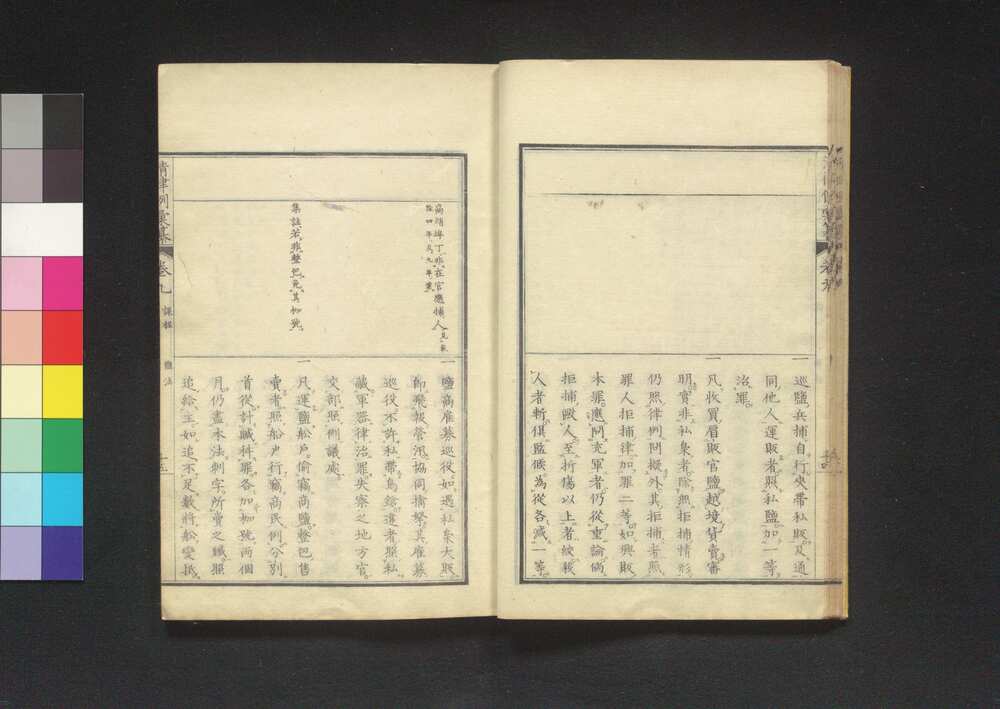 一巡鹽兵捕自行夾帶私販及通
同他人運販者照私鹽加一等
治罪
一凡收買肩販官鹽越境貨賣審
明實非私梟者除無拒捕情形
仍照律例問擬外其拒捕者照
罪人拒捕律加罪二等如興販
本罪應問充軍者仍從重論倘
拒捕毆人至折傷以上者絞殺
人者斬俱監候為從各減一等
商捕埠丁非在官應捕人
集註若非整包免其枷號
一鹽商雇募巡役如遇私梟大販
即飛報營汛協同擒拏其雇募
巡役不許私帶鳥鎗違者照私
藏軍器律治罪失察之地方官
交部照例議處
一凡運鹽船戶偷竊商鹽整包售
賣者照船戶行竊商民例分別
首從計贓科罪各加枷號兩個
月仍盡本法刺字所賣之贓照
追給主如追不足數將船變抵
清律例彙纂
卷九
課程
鹽法